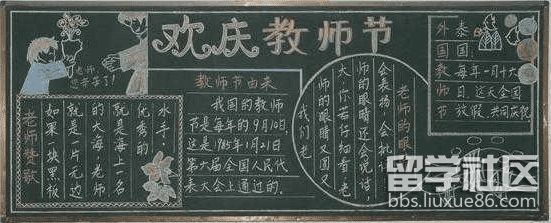 欢庆教师节
老师
您辛苦了!
老师赞歌
如果一块黑板
就是一片无边
的大海,老师
就是海上一名
优秀的
水手。
教师节由来
我国的教师
节是每年的9月10日,
这是1985年1月21日
第六届全国人民代
表大会上通过的.
老师的眼
我们老
师的眼睛又圆又
大,你若仔细看老
师的眼睛还会说话,
会表扬,会批
外国教师节
泰国:
每年一月十六
日,这天全国
放假,共同庆祝
留学社区
bbs.liuxue86.com